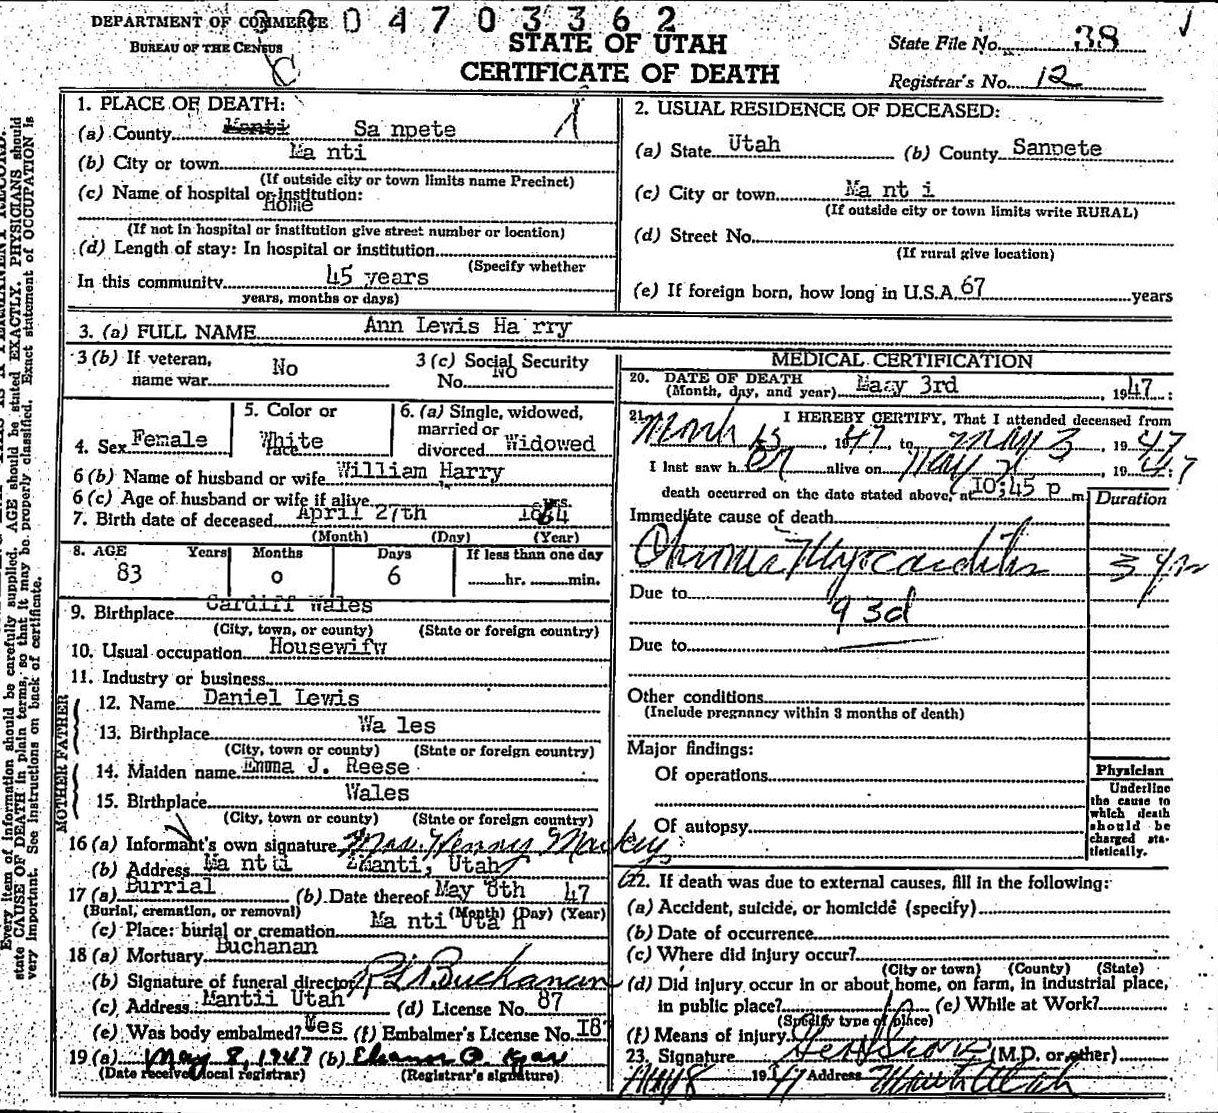 DEPARTMENT OF COMMERCE
BUREAU OF THE CENSUS
04703362
STATE OF UTAH
CERTIFICATE OF DEATH
State File No. 38
Registrar's No. 12
1. PLACE OF DEATH:
(a) County Manti Sanpete
(b) City or town Manti
(If outside city or town limits name Precinct)
(c) Name of hospital or institution:
Home
(If not in hospital or institution give street number or location)
(d) Length of stay: In hospital or institution
(Specify whether
In this community 45 years
years, months or days)
2. USUAL RESIDENCE OF DECEASED:
(a) State Utah (b) County Sanpete
(c) City or town Manti
(If outside city or town limits write RURAL)
(d) Street No.
(If rural give location)
(e) If foreign born, how long in U.S.A. 67 years
3. (a) FULL NAME Ann Lewis Harry
3 (b) If veteran, name war No
3 (c) Social Security No. No
4. Sex Female
5. Color or Race White
6. (a) Single, widowed, married or divorced Widowed
6 (b) Name of husband or wife William Harry
6 (c) Age of husband or wife if alive yrs.
7. Birth date of deceased April 27th 1864
(Month) (Day) (Year)
8. AGE Years Months Days If less than one day
83 0 6 hr. min.
9. Birthplace Cardiff Wales
(City, town, or county) (State or foreign country)
10. Usual occupation Housewifw
11. Industry or business
FATHER
12. Name Daniel Lewis
13. Birthplace Wales
(City, town or county) (State or foreign country)
MOTHER
14. Maiden name Emma J. Reese
15. Birthplace Wales
(City, town or county) (State or foreign country)
16 (a) Informant's own signature Mrs. Henny Mackey
(b) Address Manti Manti, Utah
17 (a) Burrial (b) Date thereof May 8th 47
(Burial, cremation, or removal) (Month) (Day) (Year)
(c) Place: burial or cremation Manti Utah
18 (a) Mortuary Buchanan
(b) Signature of funeral director Buchanan
(c) Address Mantii Utah (d) License No. 87
(e) Was body embalmed? Yes (f) Embalmer's License No. 187
19 (a) May 8, 1947 (b)
(Date received local registrar) (Registrar's signature)
MEDICAL CERTIFICATION
20. DATE OF DEATH
(Month, day, and year) May 3rd, 1947
21. I HEREBY CERTIFY, That I attended deceased from
March 15, 1947 to May 3, 1947
I last saw her alive on May 2, 1947
death occurred on the date stated above, at 10;45 p m. Duration
Immediate cause of death
Chronic Myocarditis 3 yrs
Due to 93d
Due to
Other conditions
(Include pregnancy within 3 months of death)
Major findings:
Of operations
Of autopsy
Physician
Underline the cause to which death should be charged statistically.
22. If death was due to external causes, fill in the following:
(a) Accident, suicide, or homicide (specify)
(b) Date of occurrence
(c) Where did injury occur?
(City or town) (County) (State)
(d) Did injury occur in or about home, on farm, in industrial place,
in public place? (e) While at Work?
(Specify type of place)
(f) Means of injury
23. Signature (M.D. or other)
May 8 1947 Address Manti Utah
Every item of information should be carefully supplied. AGE should be stated EXACTLY. PHYSICIANS should
state CAUSE OF DEATH in plain terms, so that it may be properly classified. Exact statement of OCCUPATION is
very important. See instructions on back of certificate.